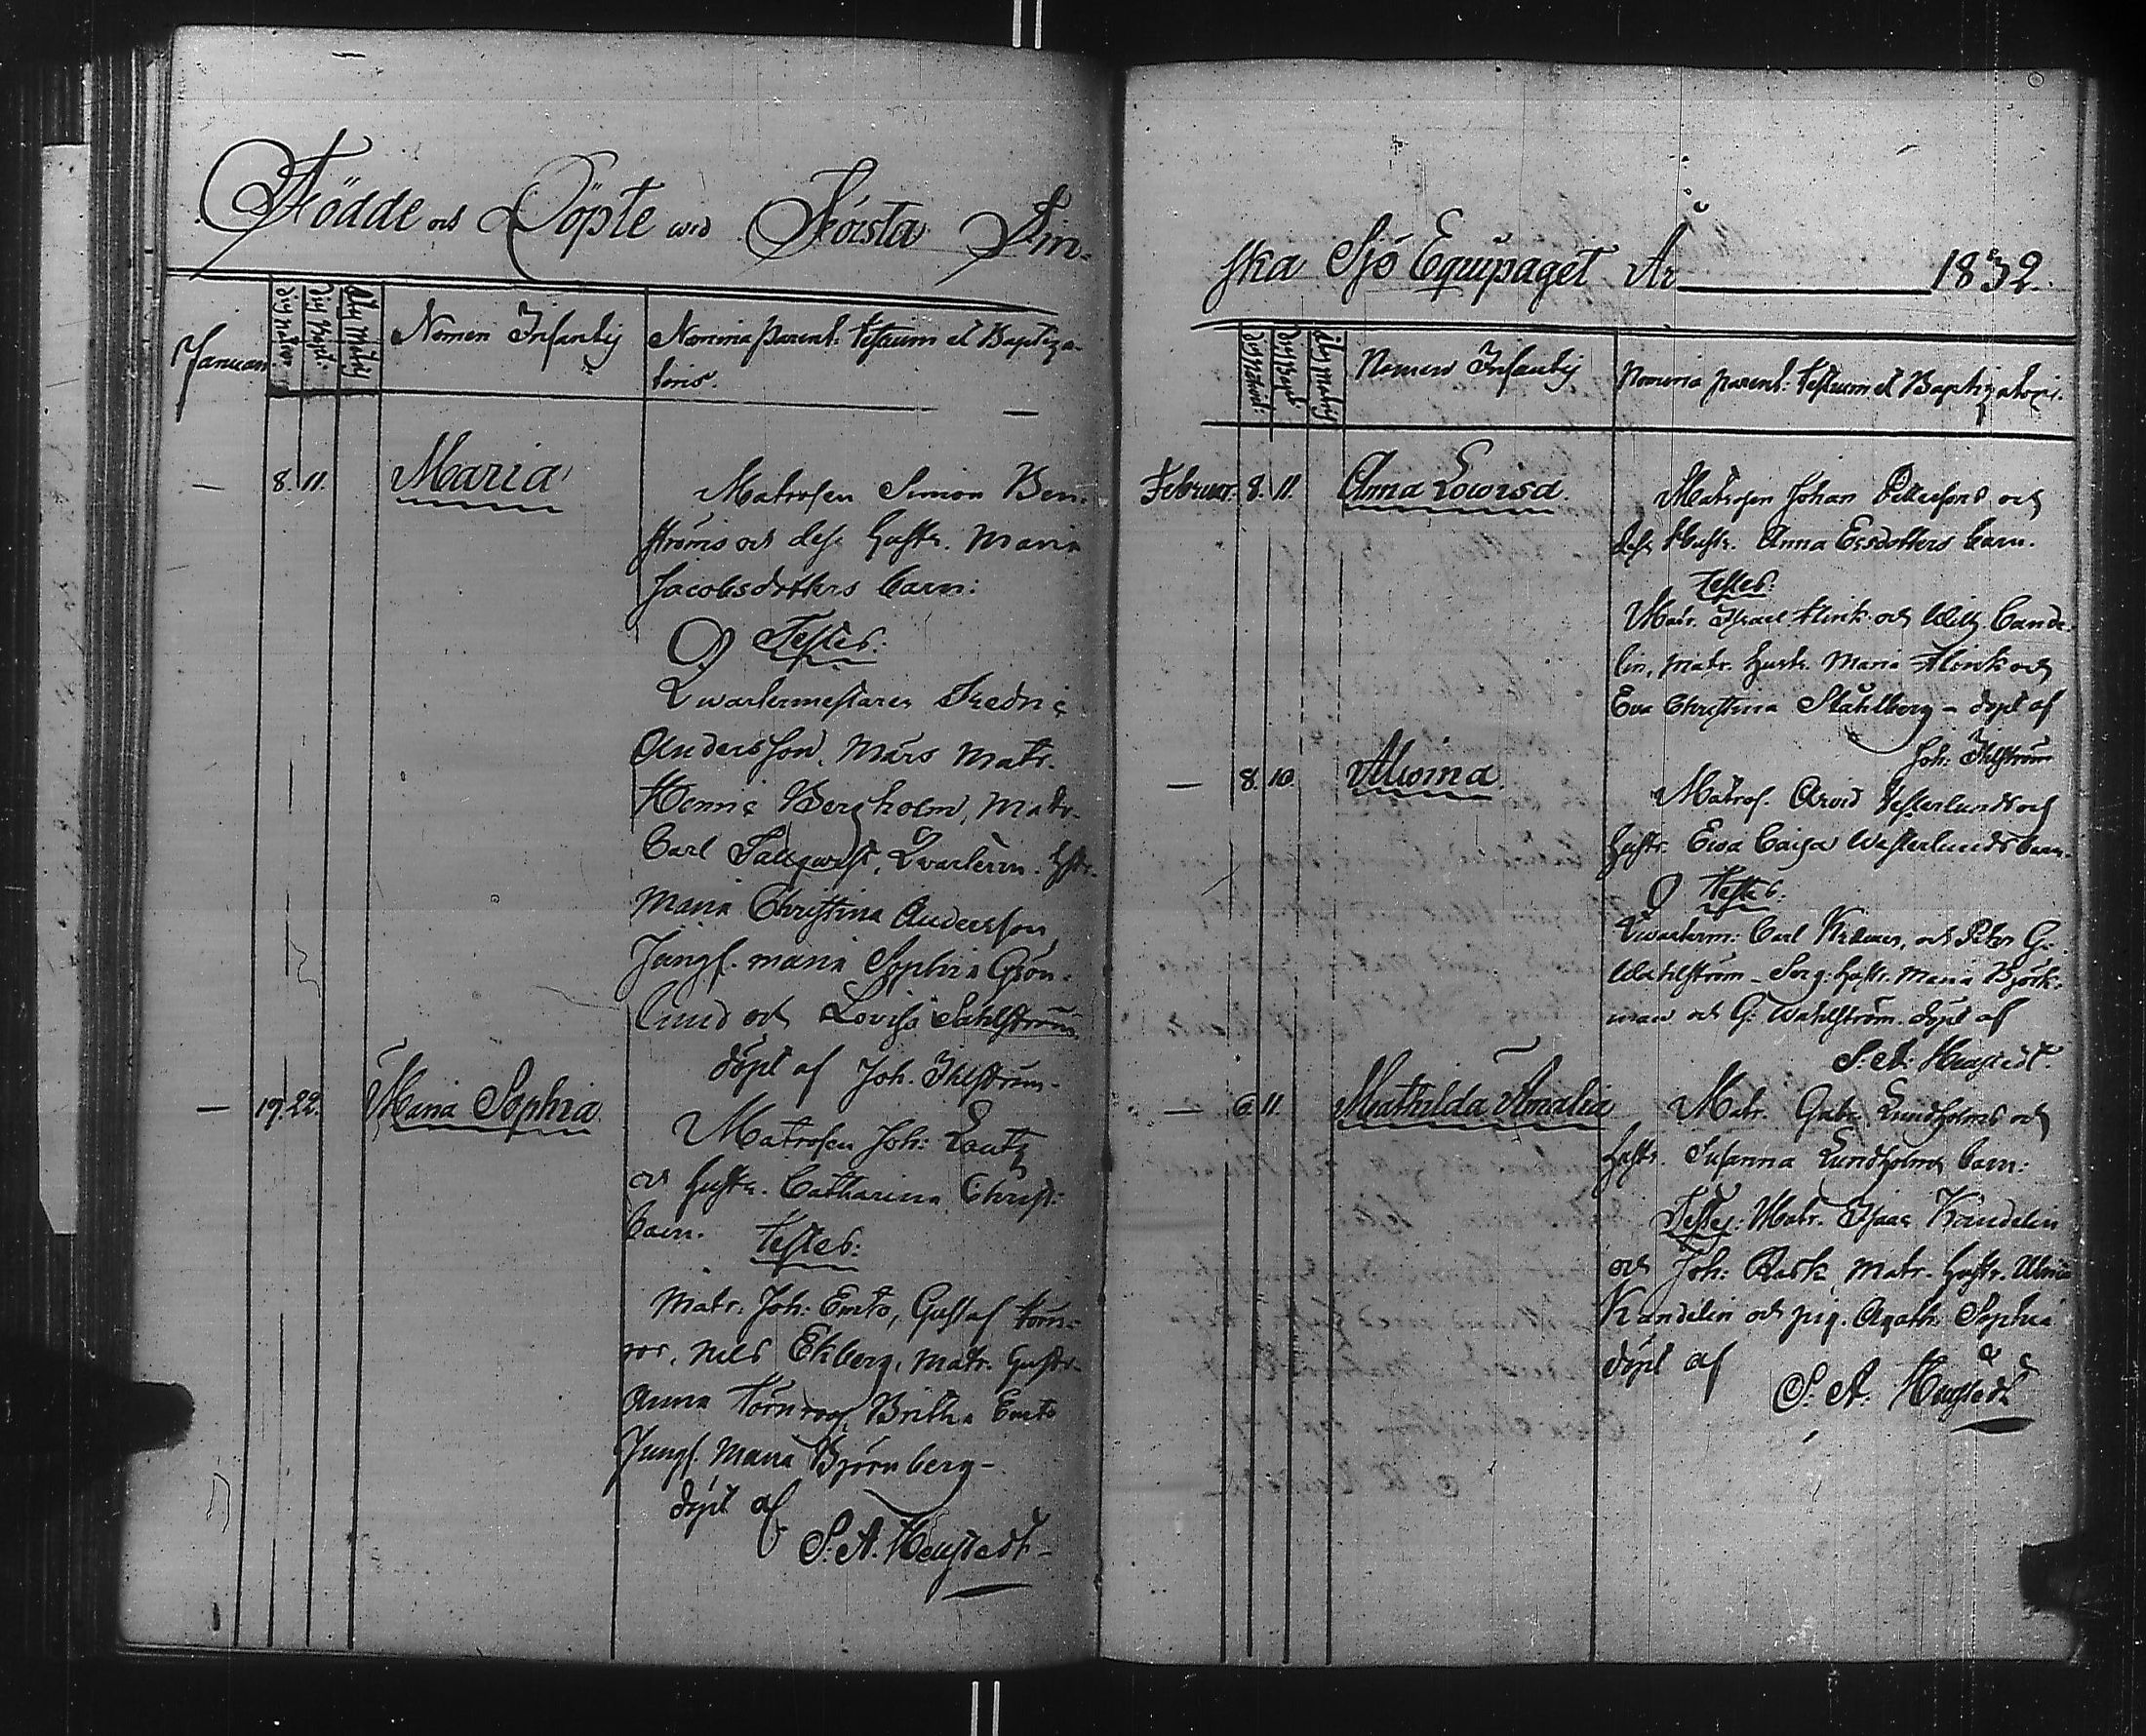 Födde och Döpte wid Första Fin-
Januari
Dies Nativ:
Dies Bapt:
Nomen Infantis
Nomina parent: testium et Baptiza-
toris.
— 8. 11. Maria
Matrosen Simon Ben-
ströms och dess hustr. Maria
Jacobsdotters barn:
Testes:
Qwartermestaren Fredric
Andersson, Mars Matr.
Henric Bergholm, Matr.
Carl Qwarterm. hstr.
Maria Christina Andersson,
Jungf. Maria Sophia Grön-
lund och Lovisa Sahlström
döpt af Joh. Ihlström-
— 19. 22. Maria Sophia
Matrosen Joh: Lautz
och hustr. Catharina Christ:
barn. Testes:
Matr. Joh: Gustaf Törn-
ros, Nils Ekberg, Matr. hustr.
Anna Törnros, Britha
Jungf. Maria Björnberg-
döpt af
S. A.
ska Sjö Equipaget År 1832.
Dies Nativit:
Dies Bapt:
Nomen Infantis
Nomina parent: testium et Baptizatori.
Februar. 8. 11. Anna Lowisa.
Matrosen Johan Pettersons och
dess Hustr. Anna Ersdotters barn.
Testes:
Matr. Israel Flink och Cande-
lin, Matr. hustr. Maria Flink och
Eva Christina Ståhlberg – döpt af
Joh: Ihlström
— 8. 10. Alwina.
Matros. Arvid Vesterlunds och
hustr. Ewa Caisa Westerlunds barn.
Testes:
Qwarterm: Carl och Peter G:
Wahlström – Serg: hustr. Maria Björk-
man och G: Wahlström. döpt af
S. A.
— 6. 11. Mathilda Amalia
Matr. Gabr. Lundholms och
hustr. Susanna Lundholms barn:
Testes: Matr. Isaac Kandelin
och Joh: Rask Matr. hustr.
Kandelin och pig. Agatha Sophia
döpt af
S. A.